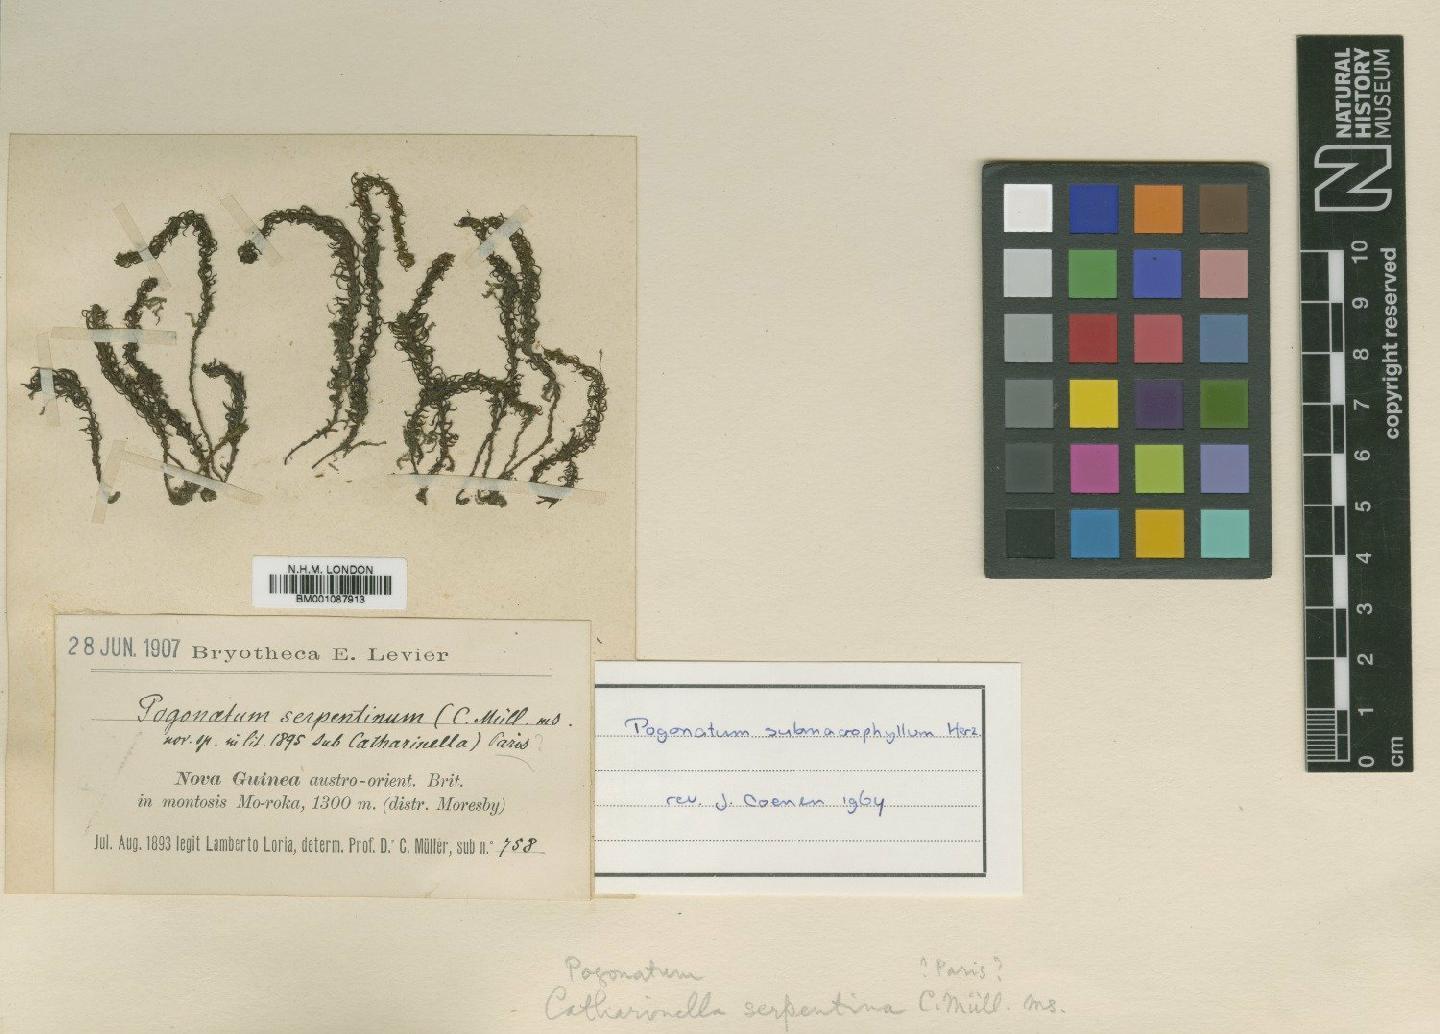 NATURAL
HISTORY
MUSEUM
copyright reserved
10
9
8
7
6
5
4
3
2
1
0
cm
N.H.M. LONDON
BM001087913
28 JUN. 1907 Bryotheca E. Levier
Pogonatum serpentinum (C. Müll. ms.
nov. sp. in lit. 1895 sub Catharinella) Paris ?
Nova Guinea austro-orient. Brit.
in montosis Mo-roka, 1300 m. (distr. Moresby)
Jul. Aug. 1893 legit Lamberto Loria, determ. Prof. D.r C. Müller, sub n.o 758
Pogonatum submacrophyllum Herz.
rev. J. Coenen 1964
Pogonatum ? Paris ?
Catharinella serpentina C. Müll. ms.